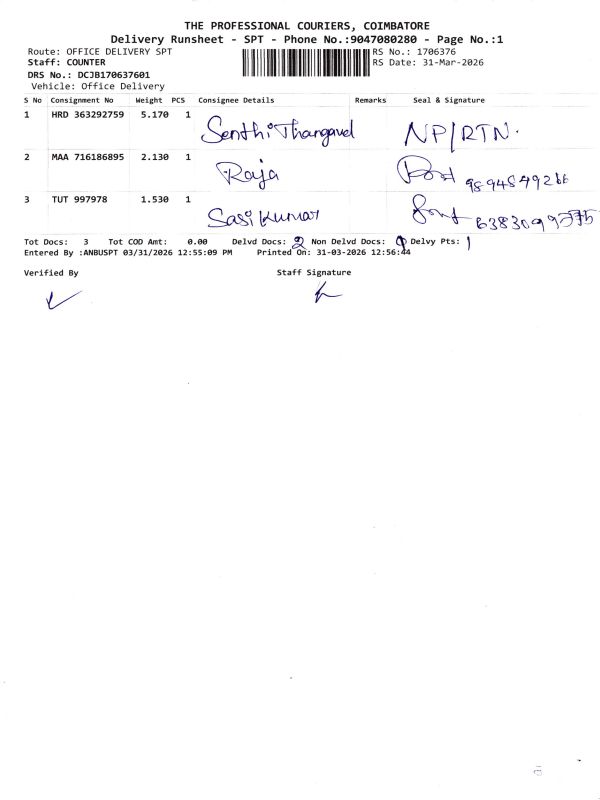 THE PROFESSIONAL COURIERS, COIMBATORE
Delivery Runsheet - SPT - Phone No.:9047080280 - Page No.:1
Route: OFFICE DELIVERY SPT RS No.: 1706376
Staff: COUNTER RS Date: 31-Mar-2026
DRS No.: DCJB170637601
Vehicle: Office Delivery
S No Consignment No Weight PCS Consignee Details Remarks Seal & Signature
1 HRD 363292759 5.170 1 Senthil Thangavel NP/RTN.
2 MAA 716186895 2.130 1 Raja 9894549266
3 TUT 997978 1.530 1 Sasi Kumar
Tot Docs: 3 Tot COD Amt: 0.00 Delvd Docs: 2 Non Delvd Docs: Delvy Pts: 1
Entered By :ANBUSPT 03/31/2026 12:55:09 PM Printed On: 31-03-2026 12:56:44
Verified By Staff Signature